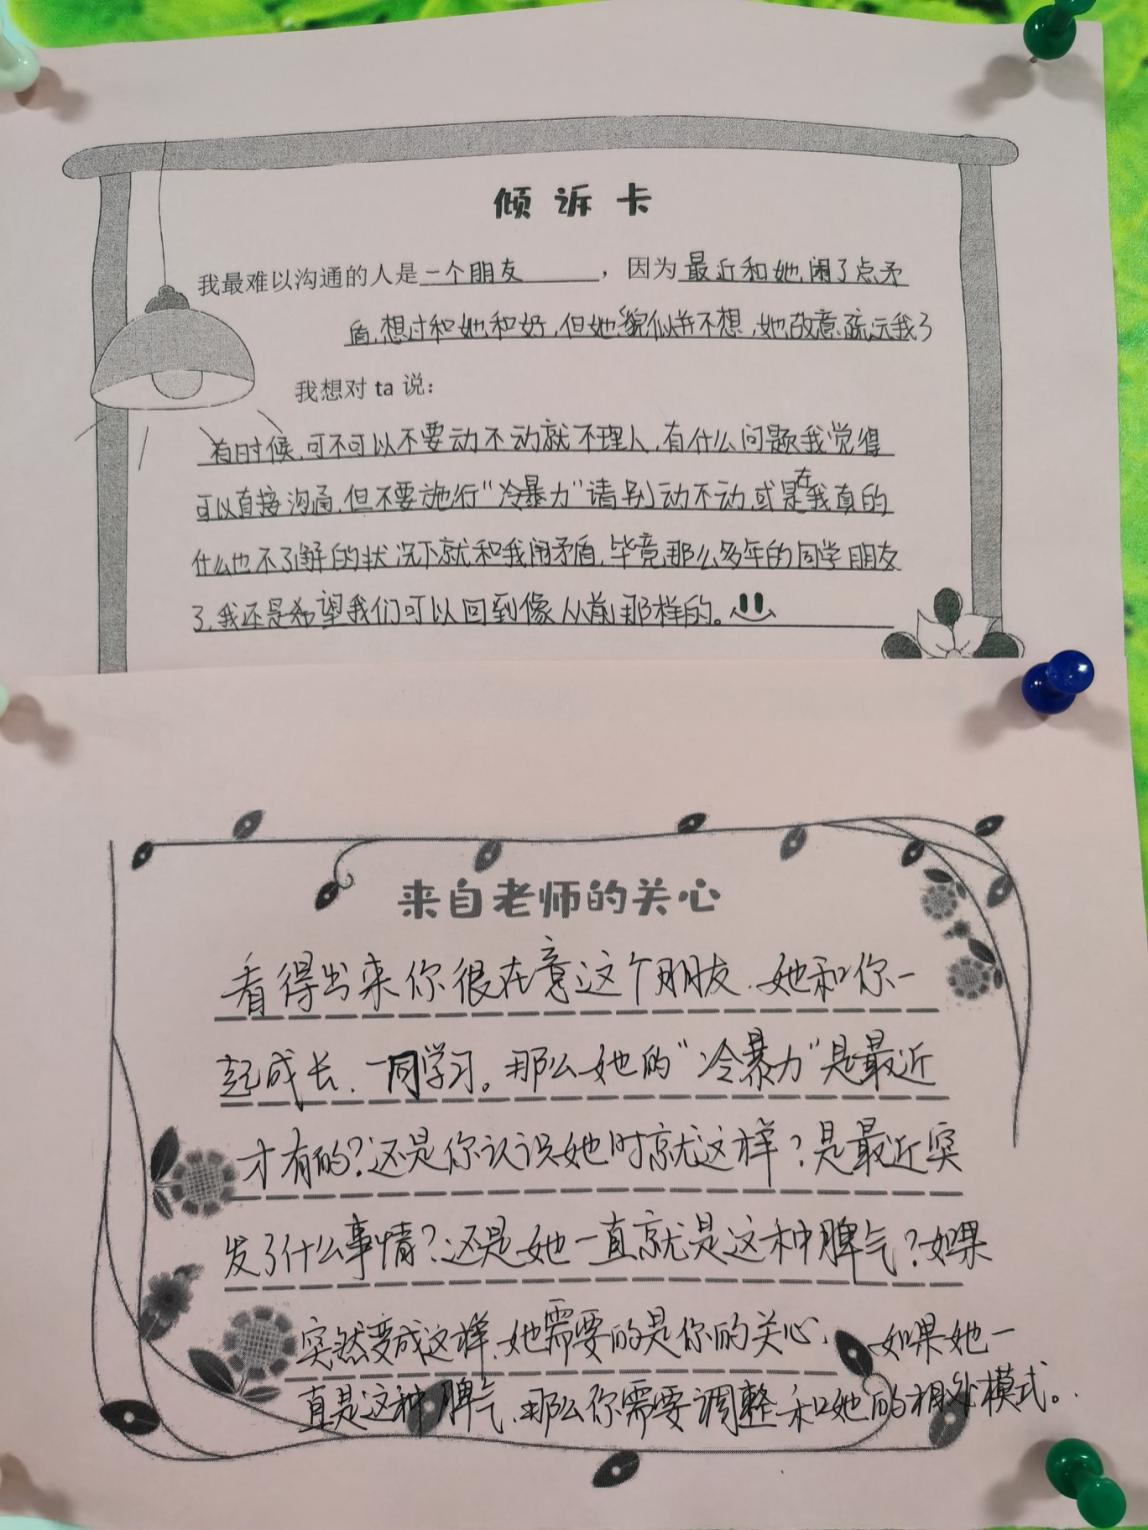 倾诉卡
我最难以沟通的人是一个朋友，因为最近和她,闹了点矛
盾,想过和她和好,但她貌似并不想,她故意疏远我了
我想对 ta 说：
有时候,可不可以不要动不动就不理人,有什么问题我觉得
可以直接沟通,但不要施行“冷暴力”请别动不动,或是在我真的
什么也不了解的状况下就和我闹矛盾,毕竟,那么多年的同学朋友
了,我还是希望我们可以回到像从前那样的。
来自老师的关心
看得出来你很在意这个朋友.她和你一
起成长、一同学习。那么她的“冷暴力”是最近
才有的?还是你认识她时就这样?是最近突
发了什么事情?还是她一直就是这种脾气?如果
突然变成这样,她需要的是你的关心.如果她一
直是这种脾气,那么你需要调整和她的相处模式。